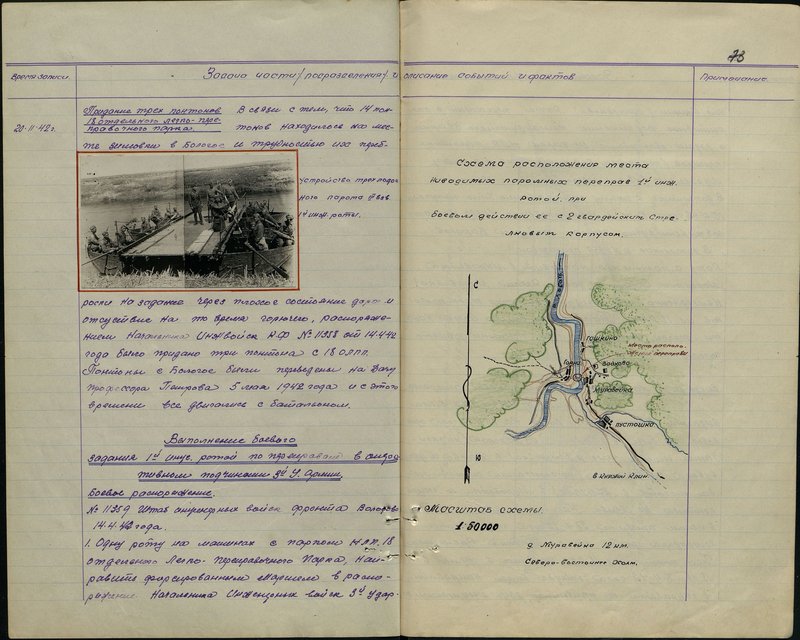 73
Время записи.
Задача части/подразделения/ и описание событий и фактов
Примечание.
20.11.42г.
Придание трех понтонов
18 отдельного легко-пере-
правочного парка.
В связи с тем, что 14 пон-
тонов находилось на мес-
те зимовки в Бологое и трудностью их переб-
устройство трех
ного парома
1й инж. роты.
роски на задание через плохое состояние дорог и
отсутствие на то время горючего, распоряже-
нием Начальника Инжвойск К.Ф. № 11358 от 14.4.42
года было придано три понтона с 18 ОЛПП.
Понтоны с Бологое были переведены на Дачу
профессора Петрова 5 мая 1942 года и с этого
времени все двигались с батальоном.
Выполнение боевого
задания 1й инж. ротой по переправам в опера
тивном подчинении 3й У. Армии.
Боевое распоряжение.
№ 11359 Штаб инженерных войск фронта
14.4.42 года.
1. Одну роту на машинах с парком Н.Л.П. 18
отдельного Легко-Переправочного Парка, Нап-
равить форсированным маршем в распо-
ряжение Начальника Инженерных войск 3й Удар-
Схема расположения места
наводимых паромных переправ 1й инж.
ротой, при
боевом действии ее с 2 гвардейским Стре-
лковым Корпусом.
С
Ю
Гошкино
Место располо.
Горки
Волково
Муравейка
Пустошка
Масштаб схемы.
1:50000
д. Муравейка 12 км.
Северо-восточнее Холм.